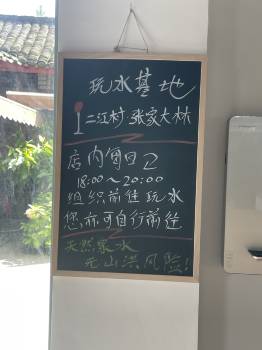 玩水基地
二江村 张家大林
店内每日2
18:00~20:00
组织前往玩水
您亦可自行前往
天然泉水
无山洪风险!